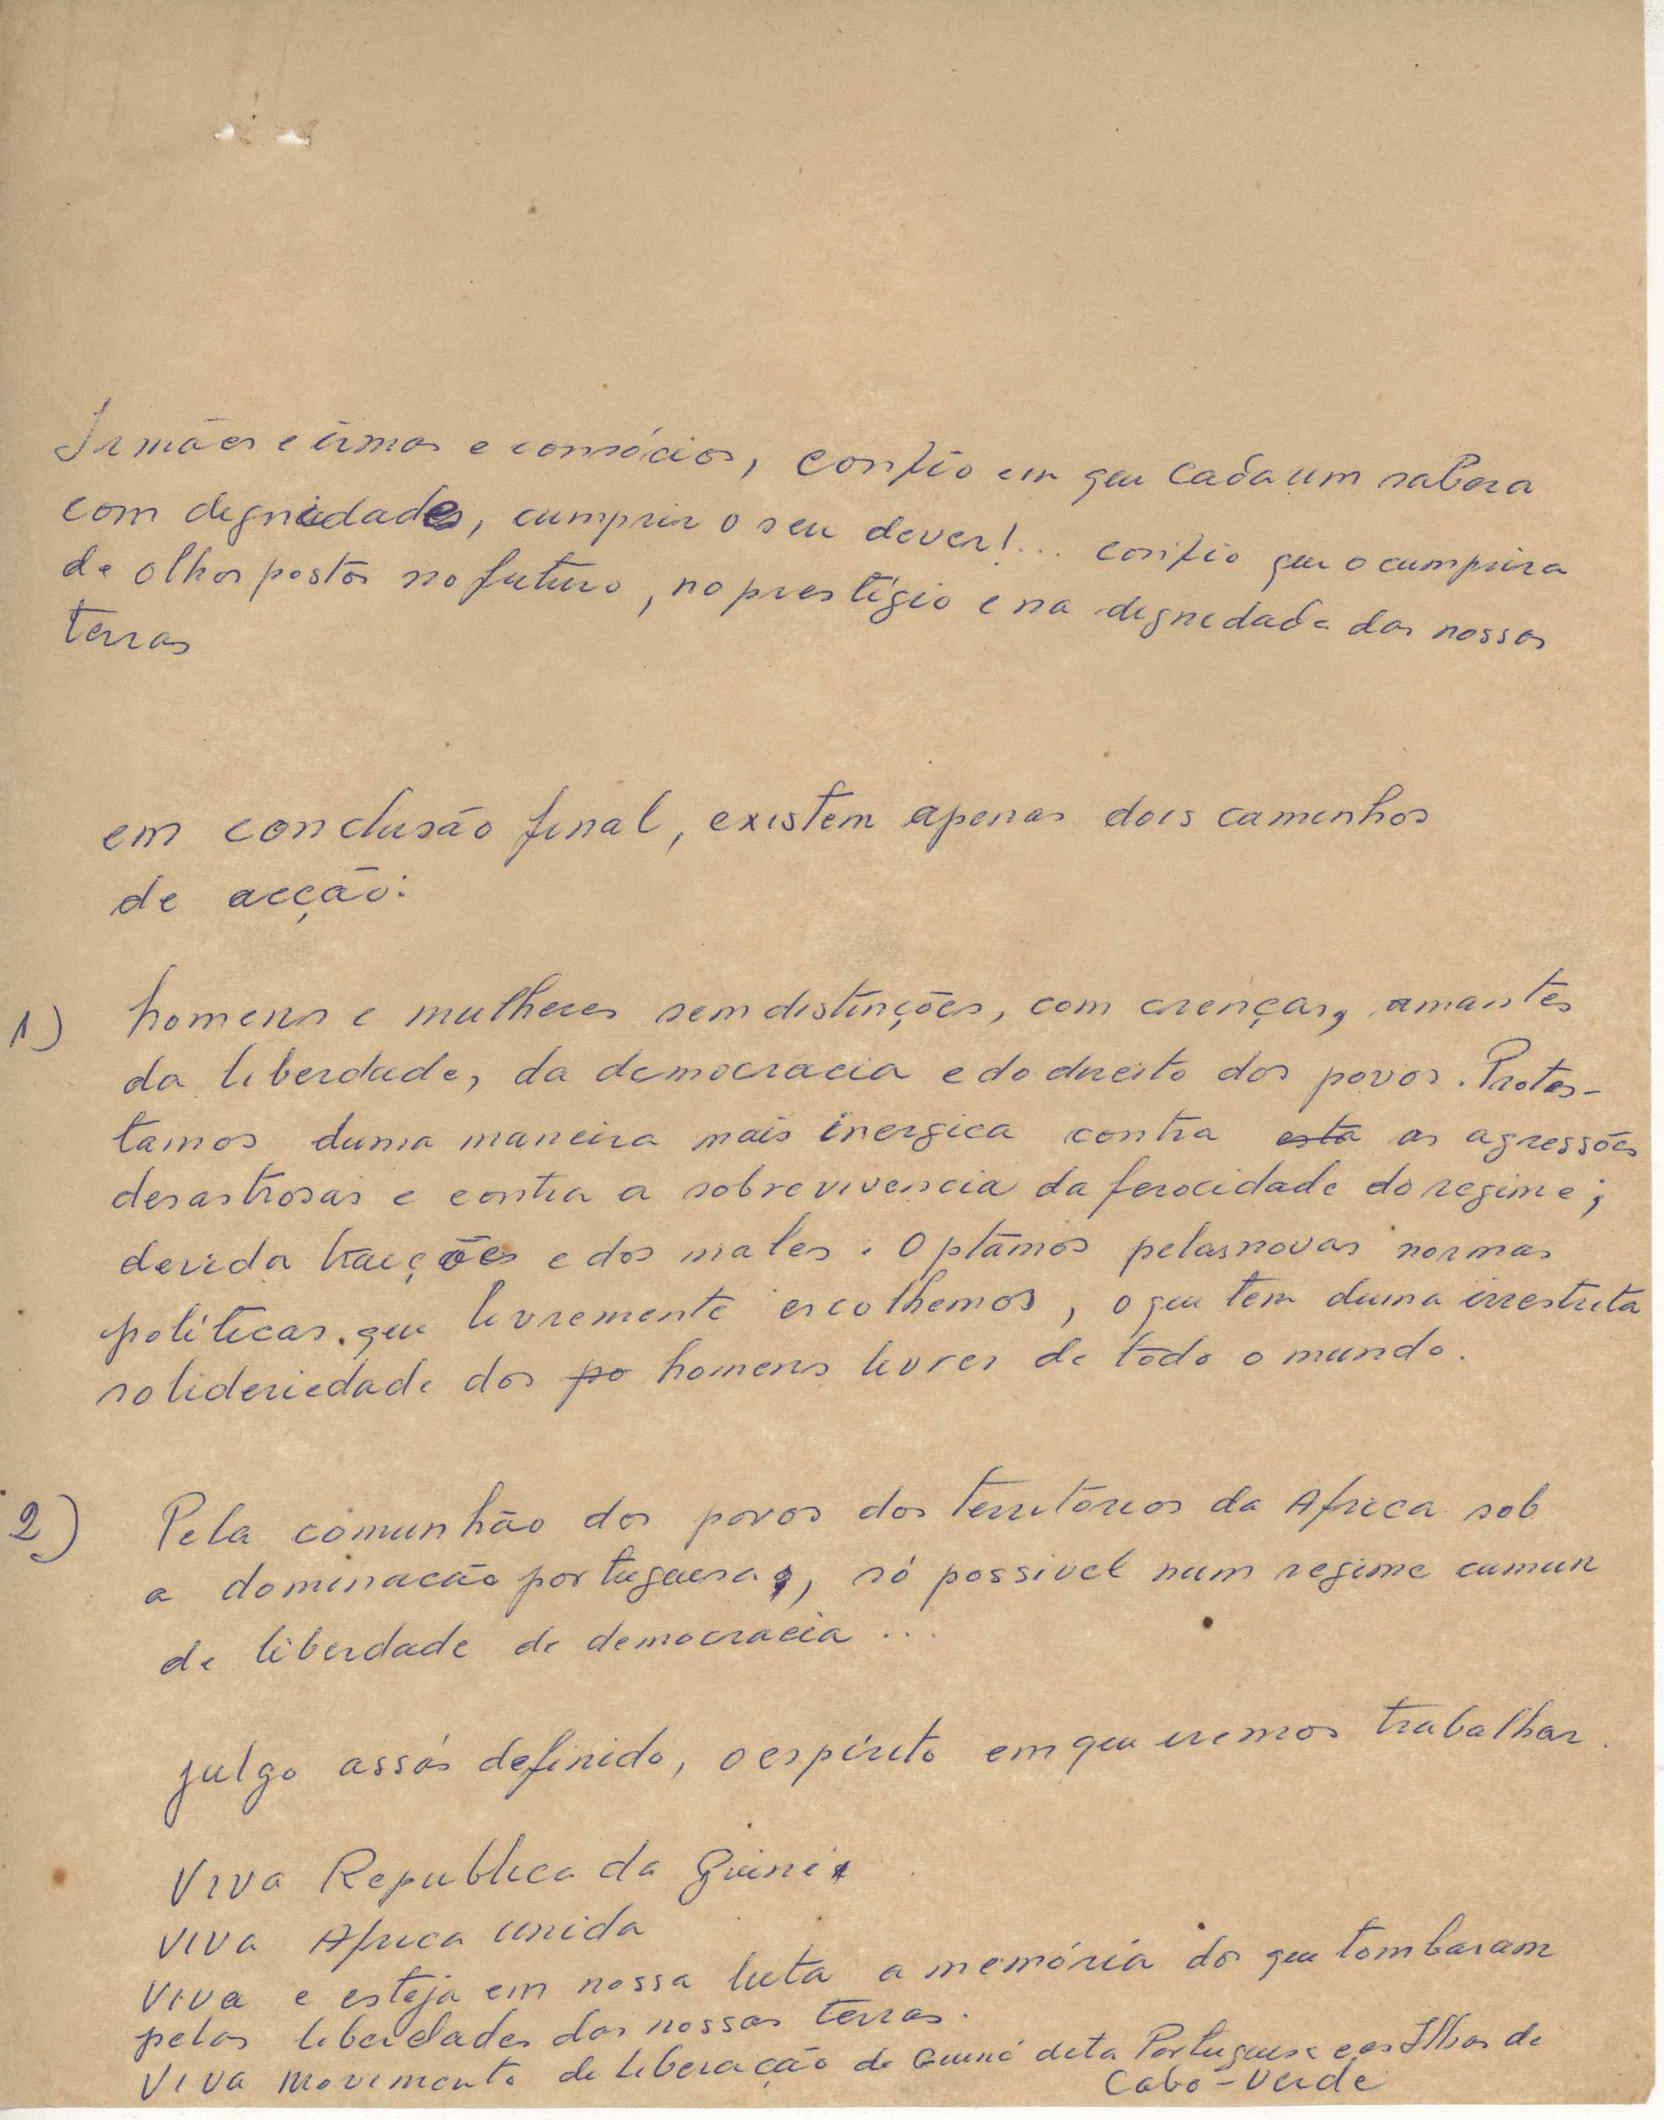 Irmães e irmas e consócios, confio em que cada um sabera
com degnidades, cumprir o seu dever!... confio que o cumprira
de olhos postos no futuro, no prestígio e na degnedade das nossas
terras
em conclusão final, existem apenas dois caminhos
de acção:
1) homens e mulheres sem distinções, com crenças, amantes
da liberdade, da democracia e do direito dos povos. Protes-
tamos duma maneira mais inergica contra esta as agressões
desastrosas e contra a sobrevivencia da ferocidade do regime;
devida traições e dos males. Optamos pelas novas normas
políticas. que livremente escolhemos, o que tem duma irrestrita
solideriedade dos po homens livres de todo o mundo.
2) Pela comunhão dos povos dos territórios da Africa sob
a dominacão portuguesa, só possivel num regime cumun
de liberdade de democracia ...
julgo assás definido, o espírito em que iremos trabalhar.
Viva Republica da Guiné
Viva Africa unida
Viva e esteja em nossa luta a memória dos que tombaram
pelas liberdades das nossas terras.
Viva movimento de liberação de Guiné dita Portuguesa e as Ilhas de
Cabo-Verde